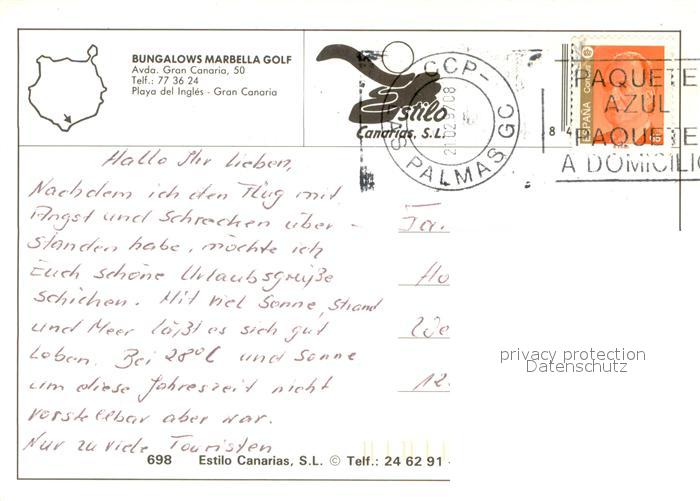 BUNGALOWS MARBELLA GOLF
Avda. Gran Canaria, 50
Telf.: 77 36 24
Playa del Inglés - Gran Canaria
Estilo
Canarias, S.L.
CCP-
LAS PALMAS GC
ESPAÑA
PAQUETE
AZUL
PAQUETE
A DOMICILIO
Hallo Ihr Lieben,
Nachdem ich den Flug mit
Angst und Schrecken über-
standen habe, möchte ich
Euch schöne Urlaubsgrüße
schicken. Mit viel Sonne, Strand
und Meer läßt es sich gut
Leben. Bei 28°C und Sonne
um diese Jahreszeit nicht
vorstellbar aber war.
Nur zu viele Touristen
Fa.
Ho
12.
privacy protection
Datenschutz
698 Estilo Canarias, S.L. © Telf.: 24 62 91 -